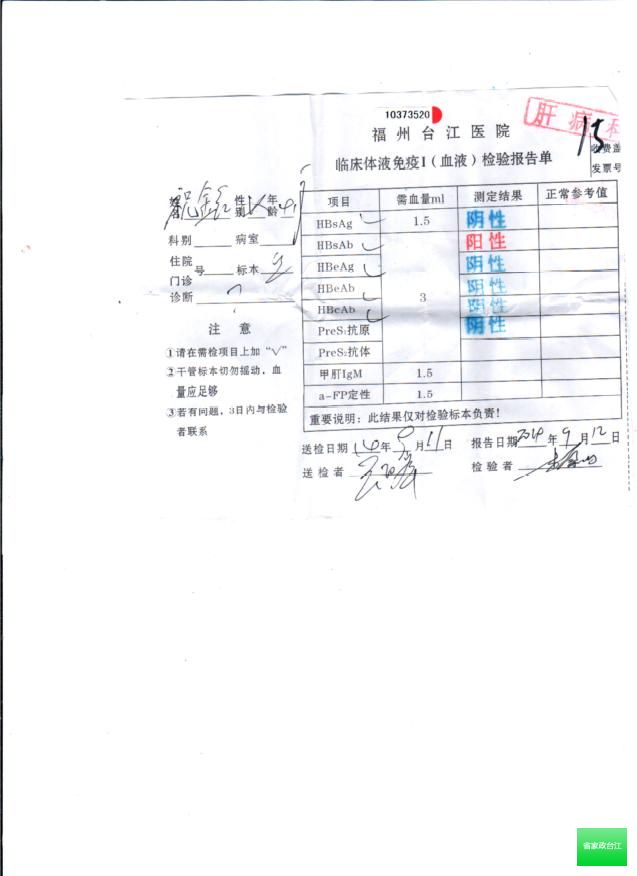 10373520
肝病科
福州台江医院
15
收费盖
临床体液免疫I（血液）检验报告单
发票号
姓名 性别 年龄
科别 病室
住院
门诊 号 标本
诊断
注 意
①请在需检项目上加“√”
②干管标本切勿摇动，血
量应足够
③若有问题，3日内与检验
者联系
项目 需血量ml 测定结果 正常参考值
HBsAg √ 1.5 阴性
HBsAb √ 阳性
HBeAg √ 阴性
HBeAb 3 阴性
HBcAb √ 阴性
PreS₁抗原 阴性
PreS₂抗体
甲肝IgM 1.5
a-FP定性 1.5
重要说明：此结果仅对检验标本负责！
送检日期 年9月11日 报告日期2014年9月12日
送检者 检验者
省家政台江